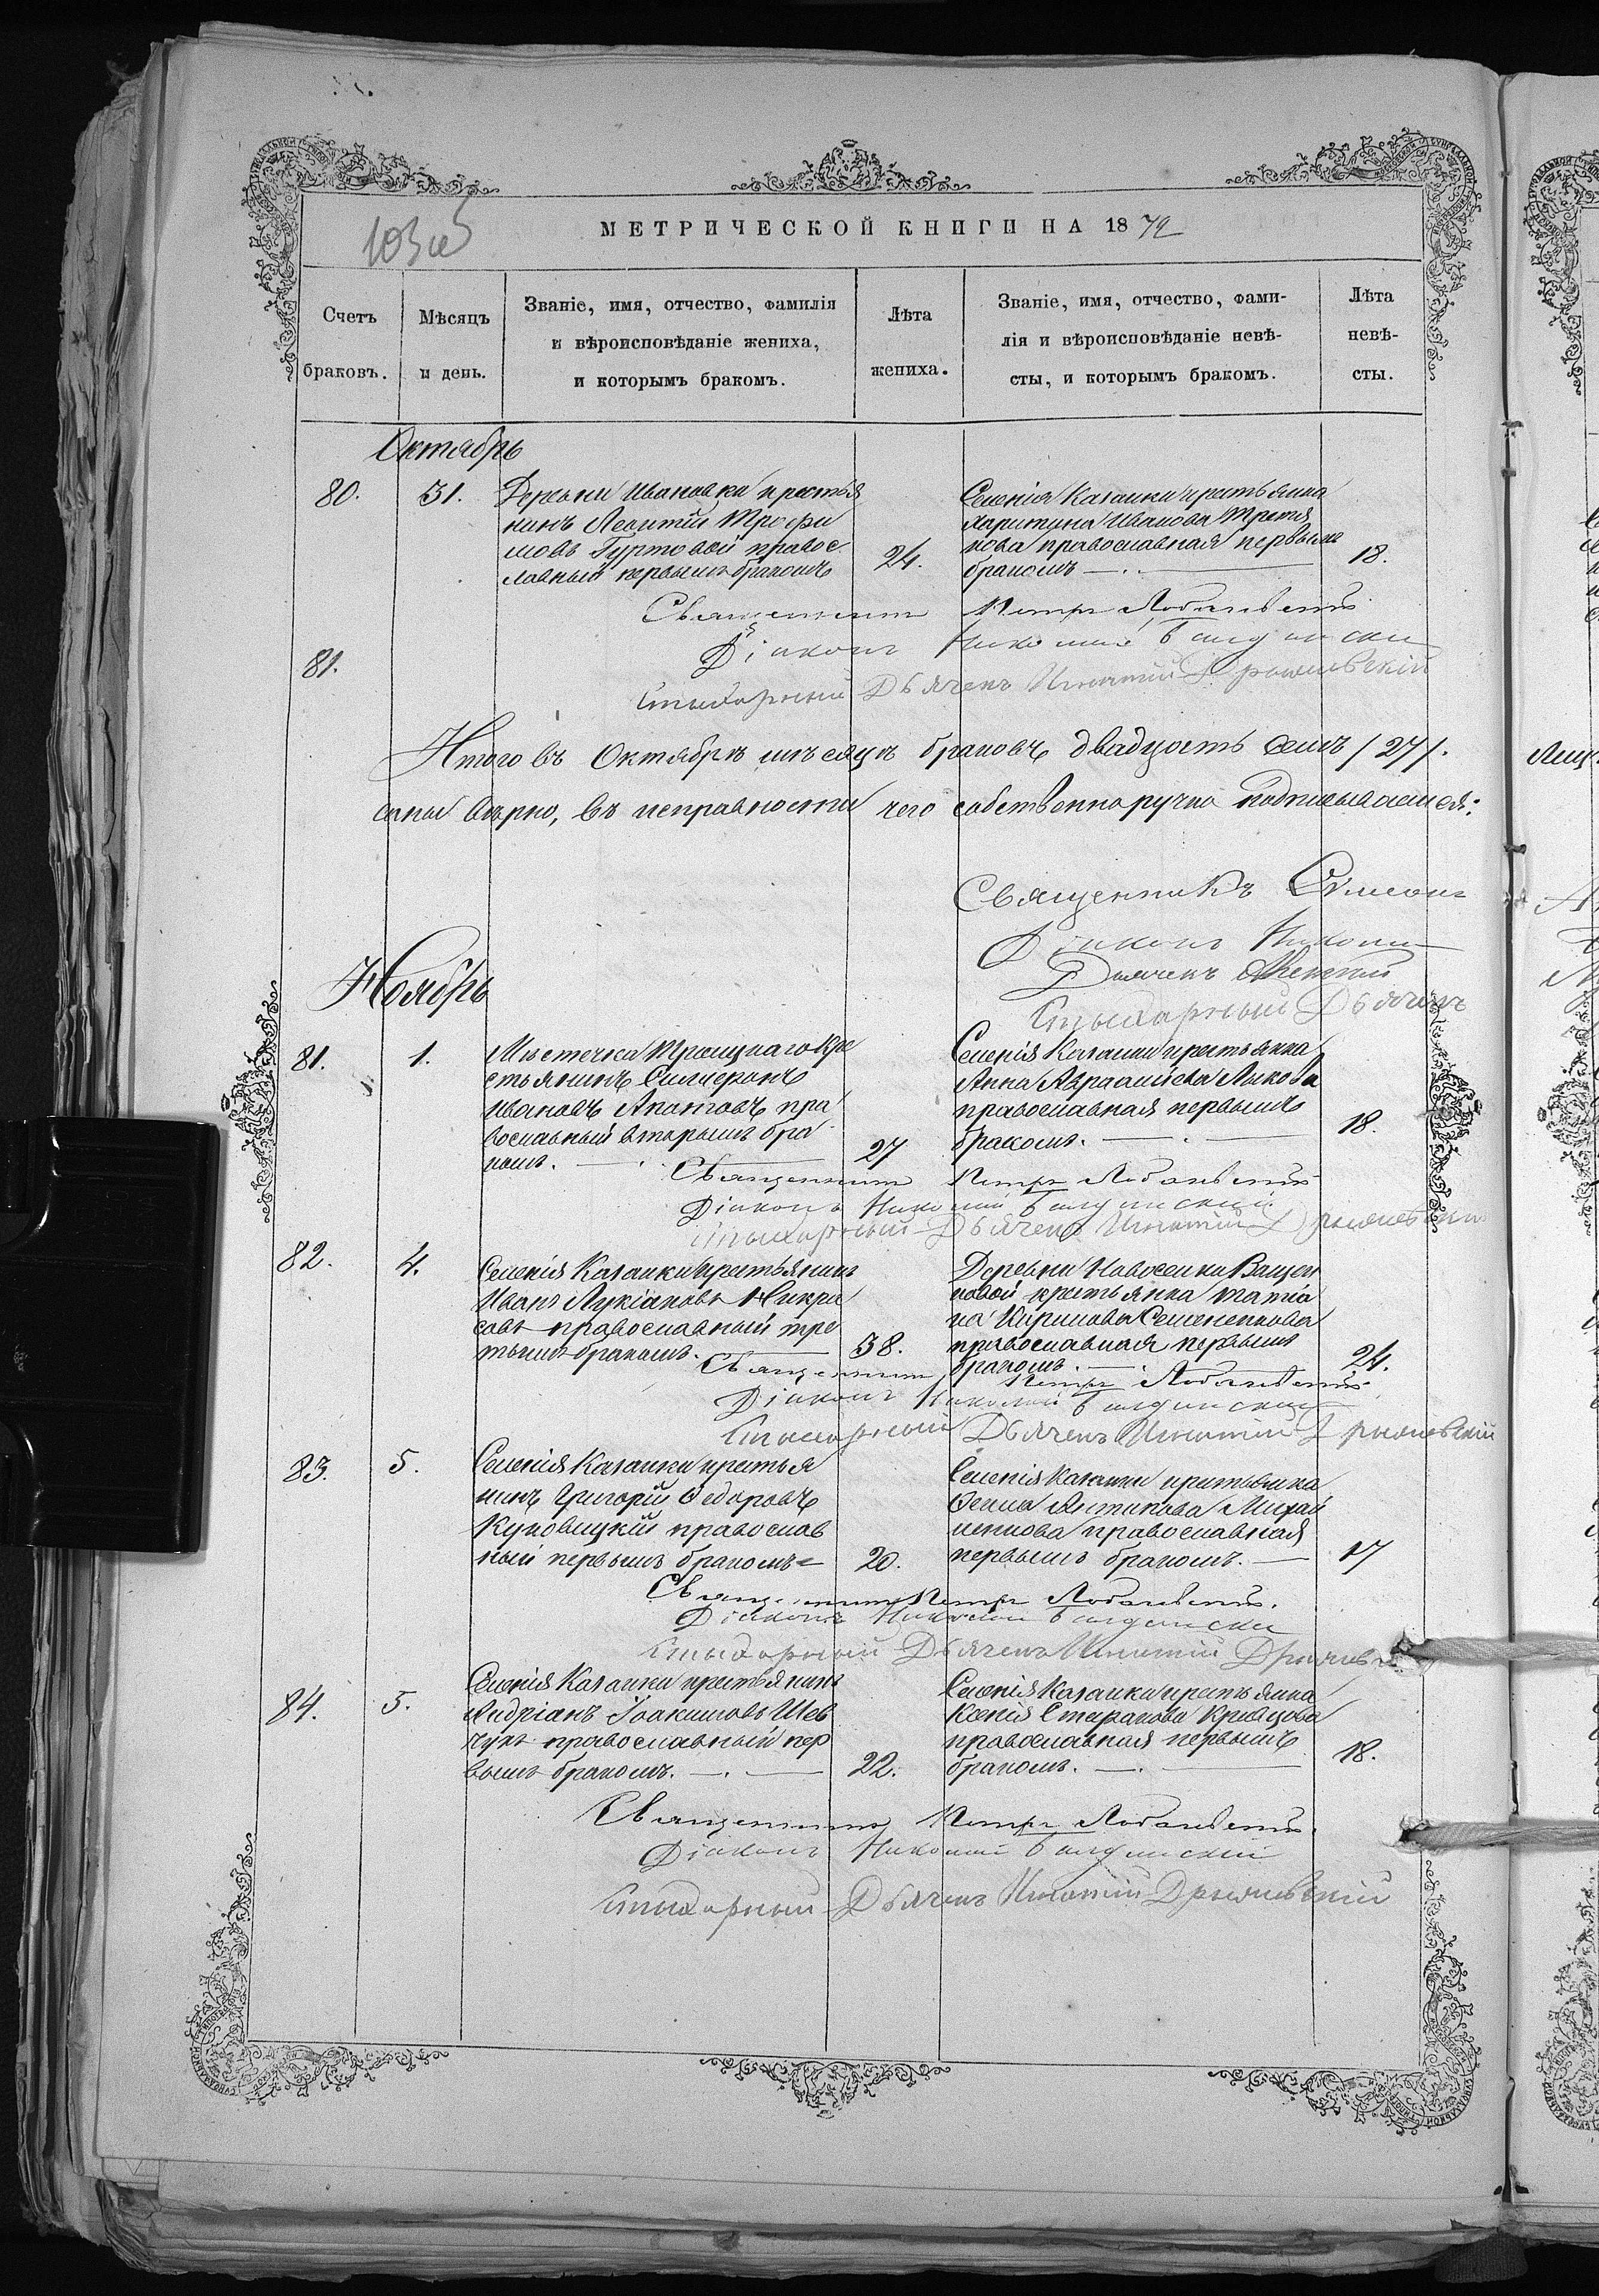 103 об
МЕТРИЧЕСКОЙ КНИГИ НА 1879
Счетъ браковъ.
Мѣсяцъ и день.
Званіе, имя, отчество, фамилія
и вѣроисповѣданіе жениха,
и которымъ бракомъ.
Лѣта жениха.
Званіе, имя, отчество, фами-
лія и вѣроисповѣданіе невѣ-
сты, и которымъ бракомъ.
Лѣта невѣ-
сты.
Октябрь
80. 31.
Деревни Ивановки крестья
нинъ Леонтій Трофи
мовъ Гуртовой правос
лавный первымъ бракомъ
24.
Селенія Казанки крестьянка
Харитина Иванова Третя
кова православная первымъ
бракомъ —
18.
Священникъ Петръ
Діаконъ Николай
81.
Стихарный Дьячекъ Игнатій
Итого въ Октябрѣ мѣсяцѣ браковъ двадцать семь /27/.
саны вѣрно, въ исправности чего собственноручно подписываемся:
Священникъ Симеонъ
Діаконъ Никола
Дьячекъ
Стихарный Дьячекъ
Ноябрь
81. 1.
Мѣстечка Троицкаго кре
стьянинъ
Ивановъ православный вторымъ бра
комъ. —
27
Селенія Казанки крестьянка
Анна Авраамиева Лихова
православная первымъ
бракомъ. —
18.
Священникъ Петръ
Діаконъ Николай
Стихарный Дьячекъ Игнатій
82. 4.
Селенія Казанки крестьянинъ
Иванъ Лукіановъ Некра
совъ православный тре
тьимъ бракомъ.
38.
Деревни Новоселки
крестьянка Татіа
на Кирилова Семененкова
православная первымъ
бракомъ. —
24.
Священникъ Петръ
Діаконъ Николай
Стихарный Дьячекъ Игнатій
83. 5.
Селенія Казанки крестья
нинъ Григорій Федоровъ
Куновицкій православ
ный первымъ бракомъ
20.
Селенія Казанки крестьянка
Михай
ленкова православная
первымъ бракомъ. —
17
Священникъ Петръ
Діаконъ Николай
Стихарный Дьячекъ Игнатій
84. 5.
Селенія Казанки крестьянинъ
Андріанъ Іоакимовъ Шев
чукъ православный пер
вымъ бракомъ. —
22.
Селенія Казанки крестьянка
Ксенія Кривцова
православная первымъ
бракомъ. —
18.
Священникъ Петръ
Діаконъ Николай
Стихарный Дьячекъ Игнатій